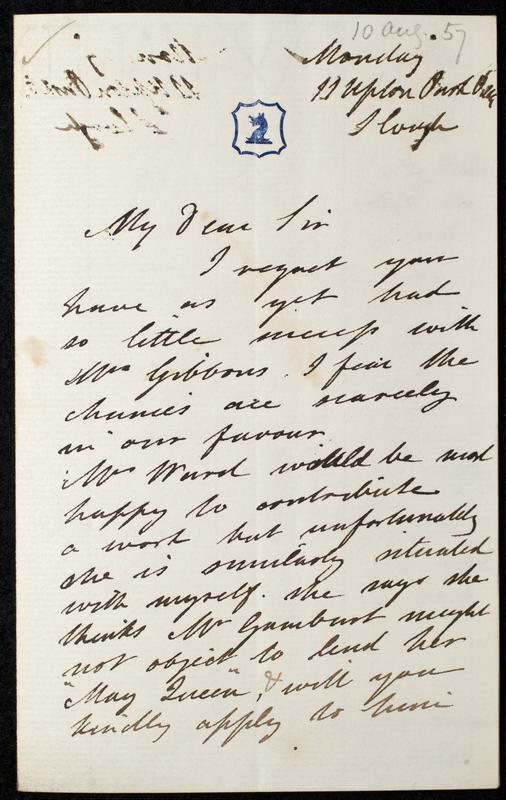 10 Aug. 57
Monday
Upton Park
Slough
My Dear Sir
I regret you
have as yet had
so little success with
Mrs Gibbons. I fear the
chances are scarcely
in our favour.
Mrs Ward would be most
happy to contribute
a work but unfortunately
she is similarly situated
with myself. she says she
thinks Mr Gambart might
not object to lend her
"May Queen", & will you
kindly apply to him